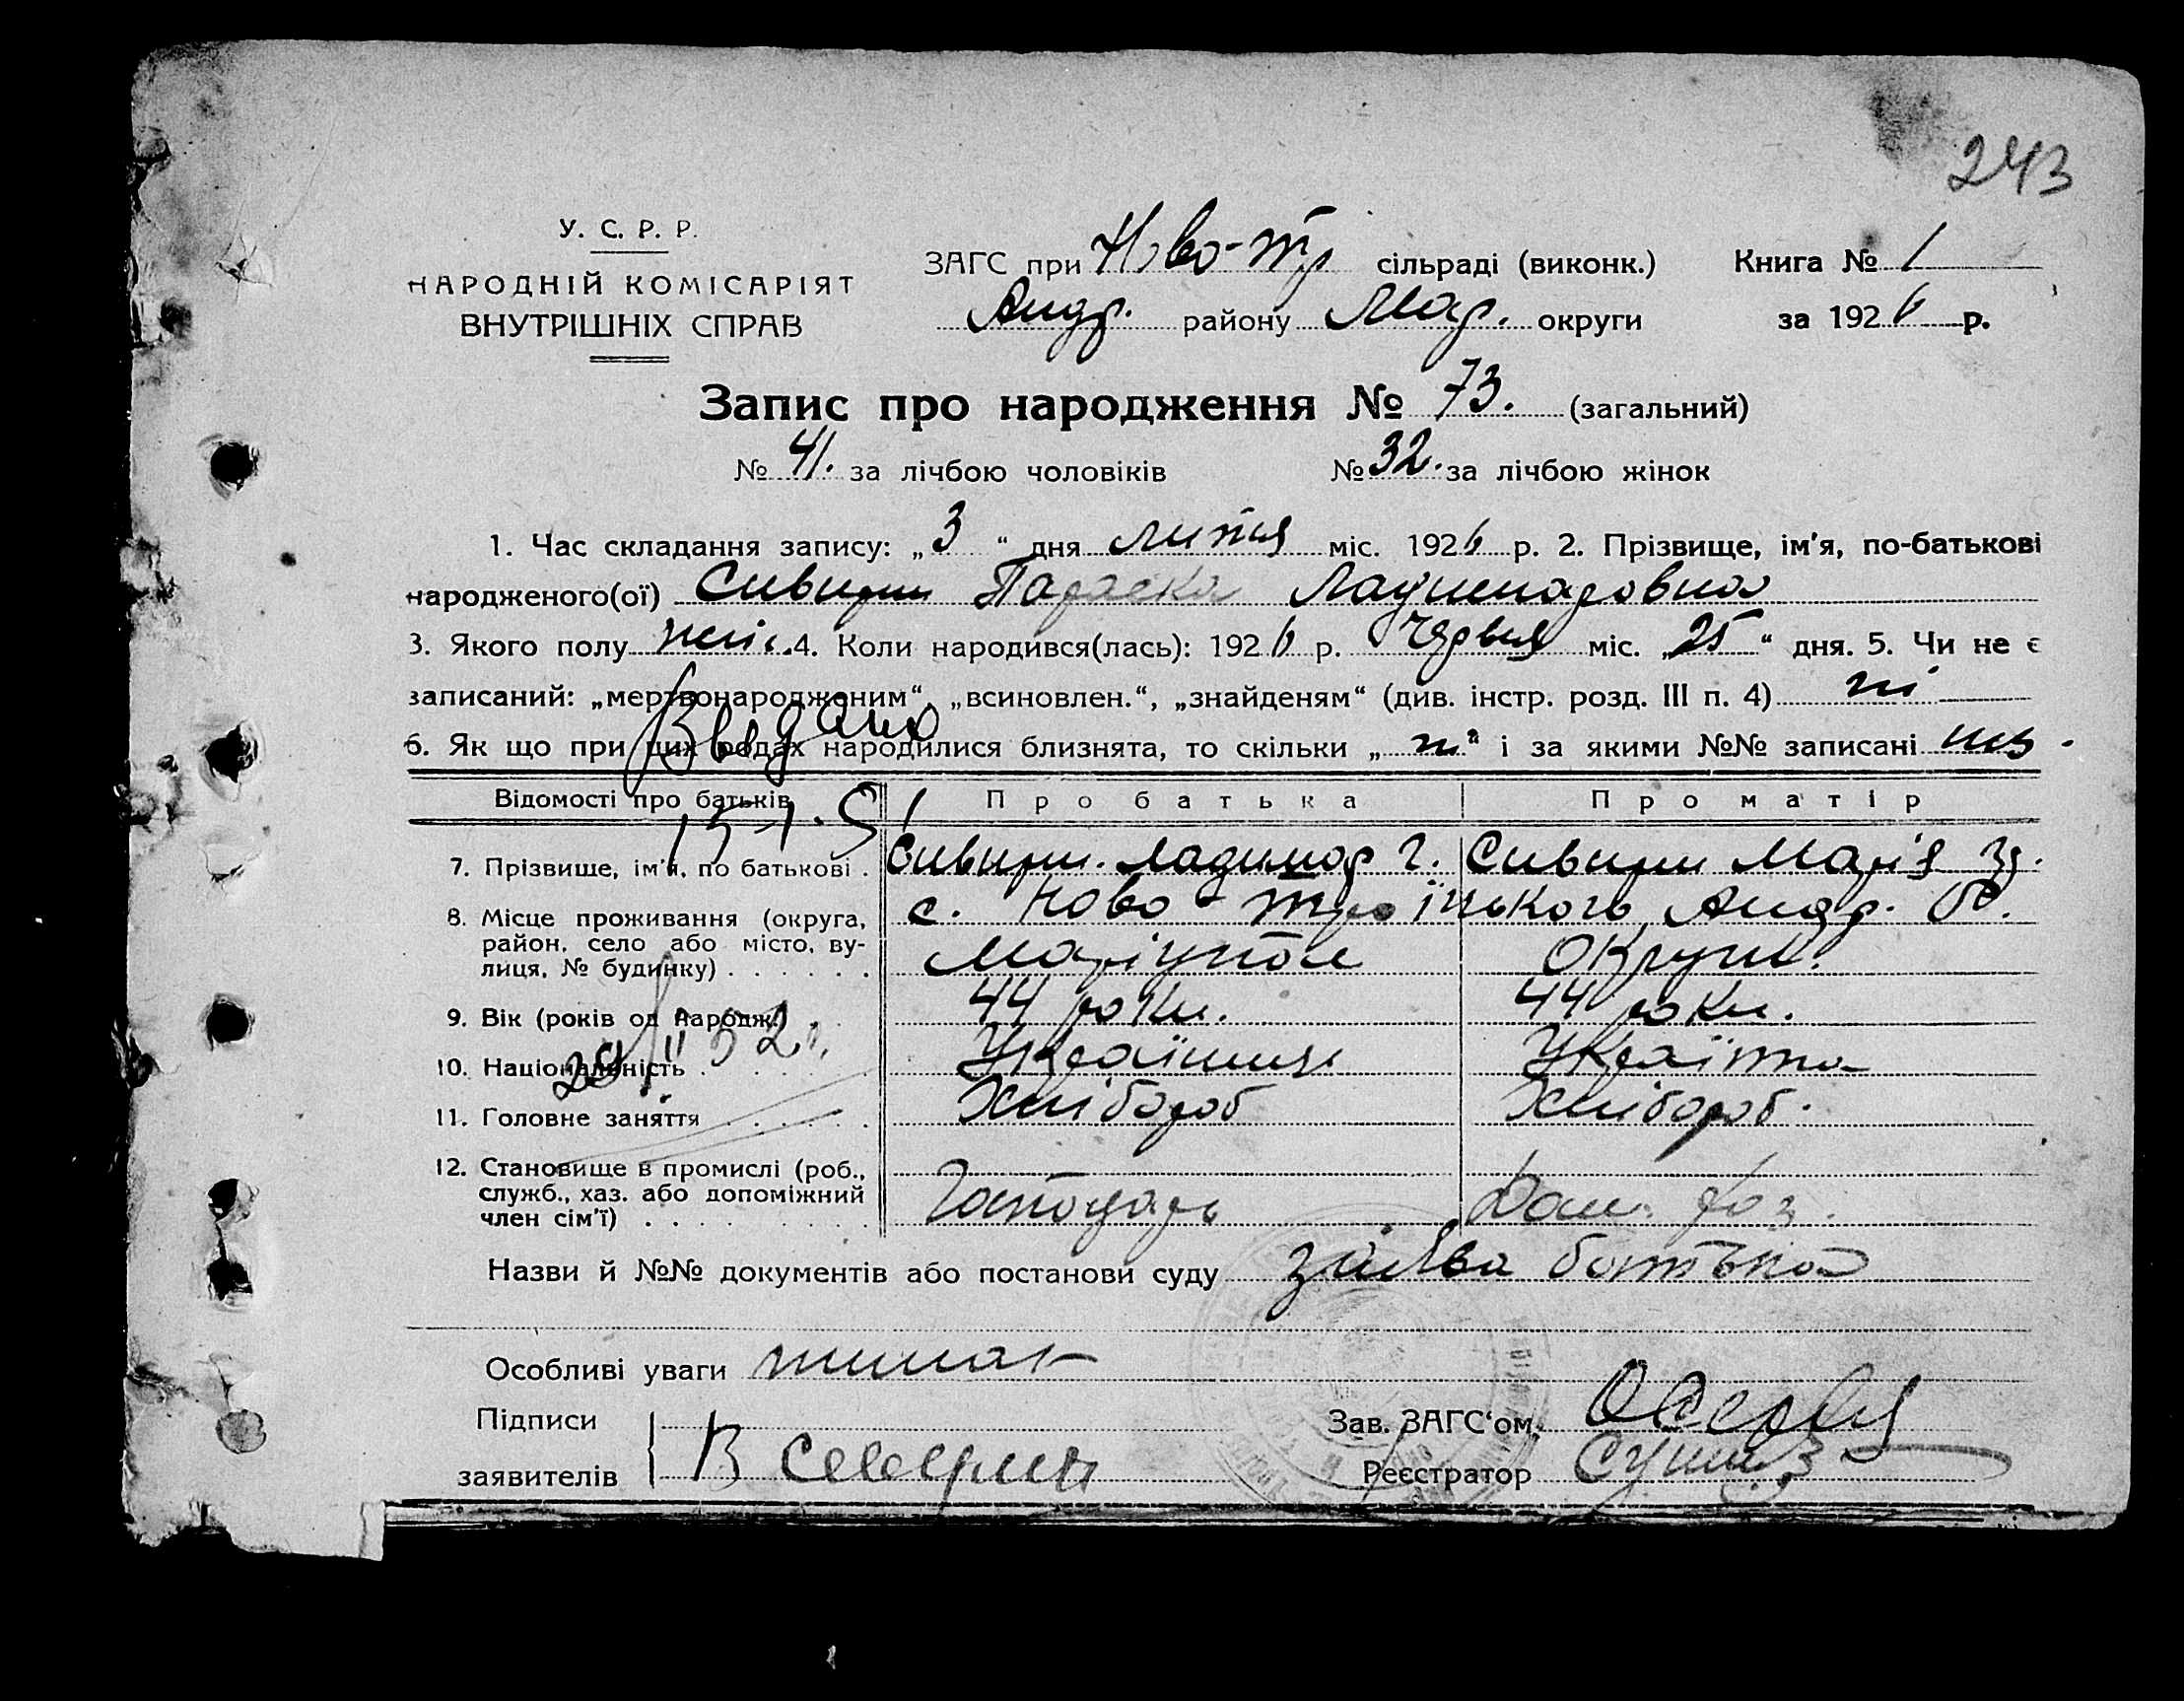 243
У. С. Р. Р.
НАРОДНІЙ КОМІСАРІЯТ
ВНУТРІШНІХ СПРАВ
ЗАГС при Ново-Тр сільраді (виконк.) Книга № 1
Андр. району Мар. округи за 1926 р.
Запис про народження № 73. (загальний)
№ 41. за лічбою чоловіків № 32. за лічбою жінок
1. Час складання запису: „3“ дня липня міс. 1926 р. 2. Прізвище, ім'я, по-батькові
народженого(ої) Сивирин Параска
3. Якого полу жін. 4. Коли народився(лась): 1926 р. Червня міс. „25“ дня. 5. Чи не є
записаний: „мертвонародженим“, „всиновлен.“, „знайденям“ (див. інстр. розд. III п. 4) ні
Выдано
6. Як що при цих родах народилися близнята, то скільки „ “ і за якими №№ записані
Відомості про батьків Про батька Про матір
7. Прізвище, ім'я, по батькові . Сивирин. Г. Сивирин Марія
8. Місце проживання (округа, с. Ново-Троїцького, Андр.
район, село або місто, ву- Маріупол округи.
лиця, № будинку) . . . . . .
9. Вік (років од народж.) . 44 роки. 44 роки.
10. Національність . Українці Українка
11. Головне заняття . . . . . . Хлібороб Хлібороб.
12. Становище в промислі (роб.,
служб., хаз. або допоміжний Господарь Дом. хоз.
член сім'ї) . . . . . . . . .
Назви й №№ документів або постанови суду заява батька
Особливі уваги немає
Підписи Зав. ЗАГС'ом
заявителів В Северин Реєстратор